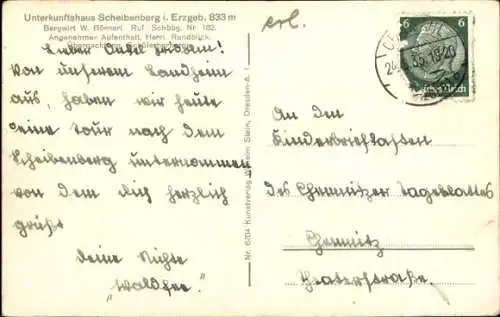 Unterkunftshaus Scheibenberg i. Erzgeb. 833 m
Bergwirt W. Römer; Ruf Schbbg. Nr. 182.
Angenehmer Aufenthalt. Herrl. Rundblick.
erl.
Lieber Onkel Fridolin!
Von unserem Landheim
aus, haben wir heute
eine Tour nach dem
Scheibenberg unternommen
von dem Dich herzlich
grüßt
Deine Nichte
"Waldfee."
Nr. 6704 Kunstverlag Wilhelm Stein, Dresden-A. 1
6 6
Deutsches Reich
An den
Kinderbriefkasten
des Chemnitzer Tageblattes
Chemnitz
Theaterstraße.